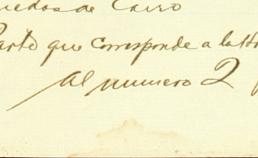 ruedas de Carro
Parte que corresponde a la
Al numero 2